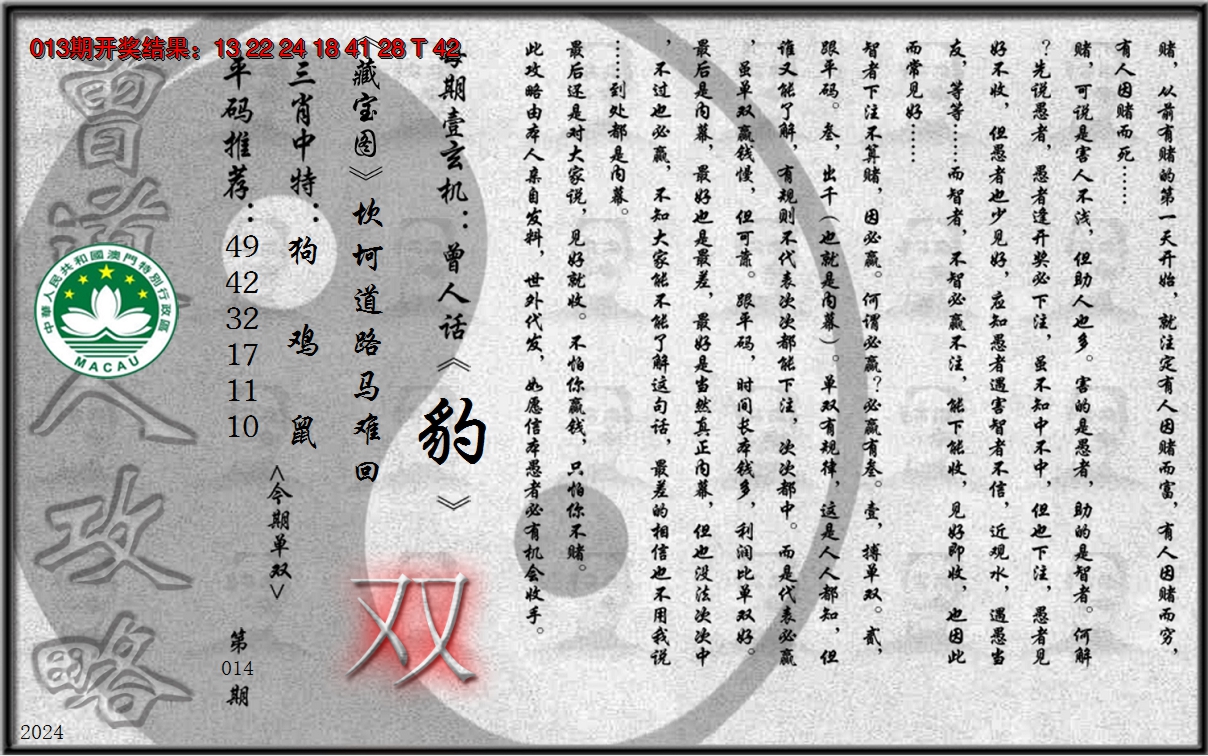 013期开奖结果：13 22 24 18 41 28 T 42
赌，从前有赌的第一天开始，就注定有人因赌而富，有人因赌而穷，
有人因赌而死……
赌，可说是害人不浅，但助人也多。害的是愚者，助的是智者。何解
？先说愚者，愚者逢开奖必下注，虽不知中不中，但也下注，愚者见
好不收，但愚者也少见好，应知愚者遇害智者不信，近观水，遇愚当
友，等等……而智者，不智必赢不注，能下能收，见好即收，也因此
而常见好……
智者下注不算赌，因必赢。何谓必赢？必赢有叁。壹，搏单双。贰，
跟平码。叁，出千（也就是内幕）。单双有规律，这是人人都知，但
谁又能了解，有规则不代表次次都能下注，次次都中。而是代表必赢
，虽单双赢钱慢，但可靠。跟平码，时间长本钱多，利润比单双好。
最后是内幕，最好也是最差，最好是当然真正内幕，但也没法次次中
，不过也必赢，不知大家能不能了解这句话，最差的相信也不用我说
……到处都是内幕。
最后还是对大家说，见好就收。不怕你赢钱，只怕你不赌。
此攻略由本人亲自发料，世外代发，如愿信本愚者必有机会收手。
每期壹玄机：曾人话《豹》
《藏宝图》坎坷道路马难回
双
三肖中特：狗 鸡 鼠
<今期单双>
平码推荐：49 42 32 17 11 10
第014期
曾道人攻略
中華人民共和國澳門特別行政區
MACAU
2024